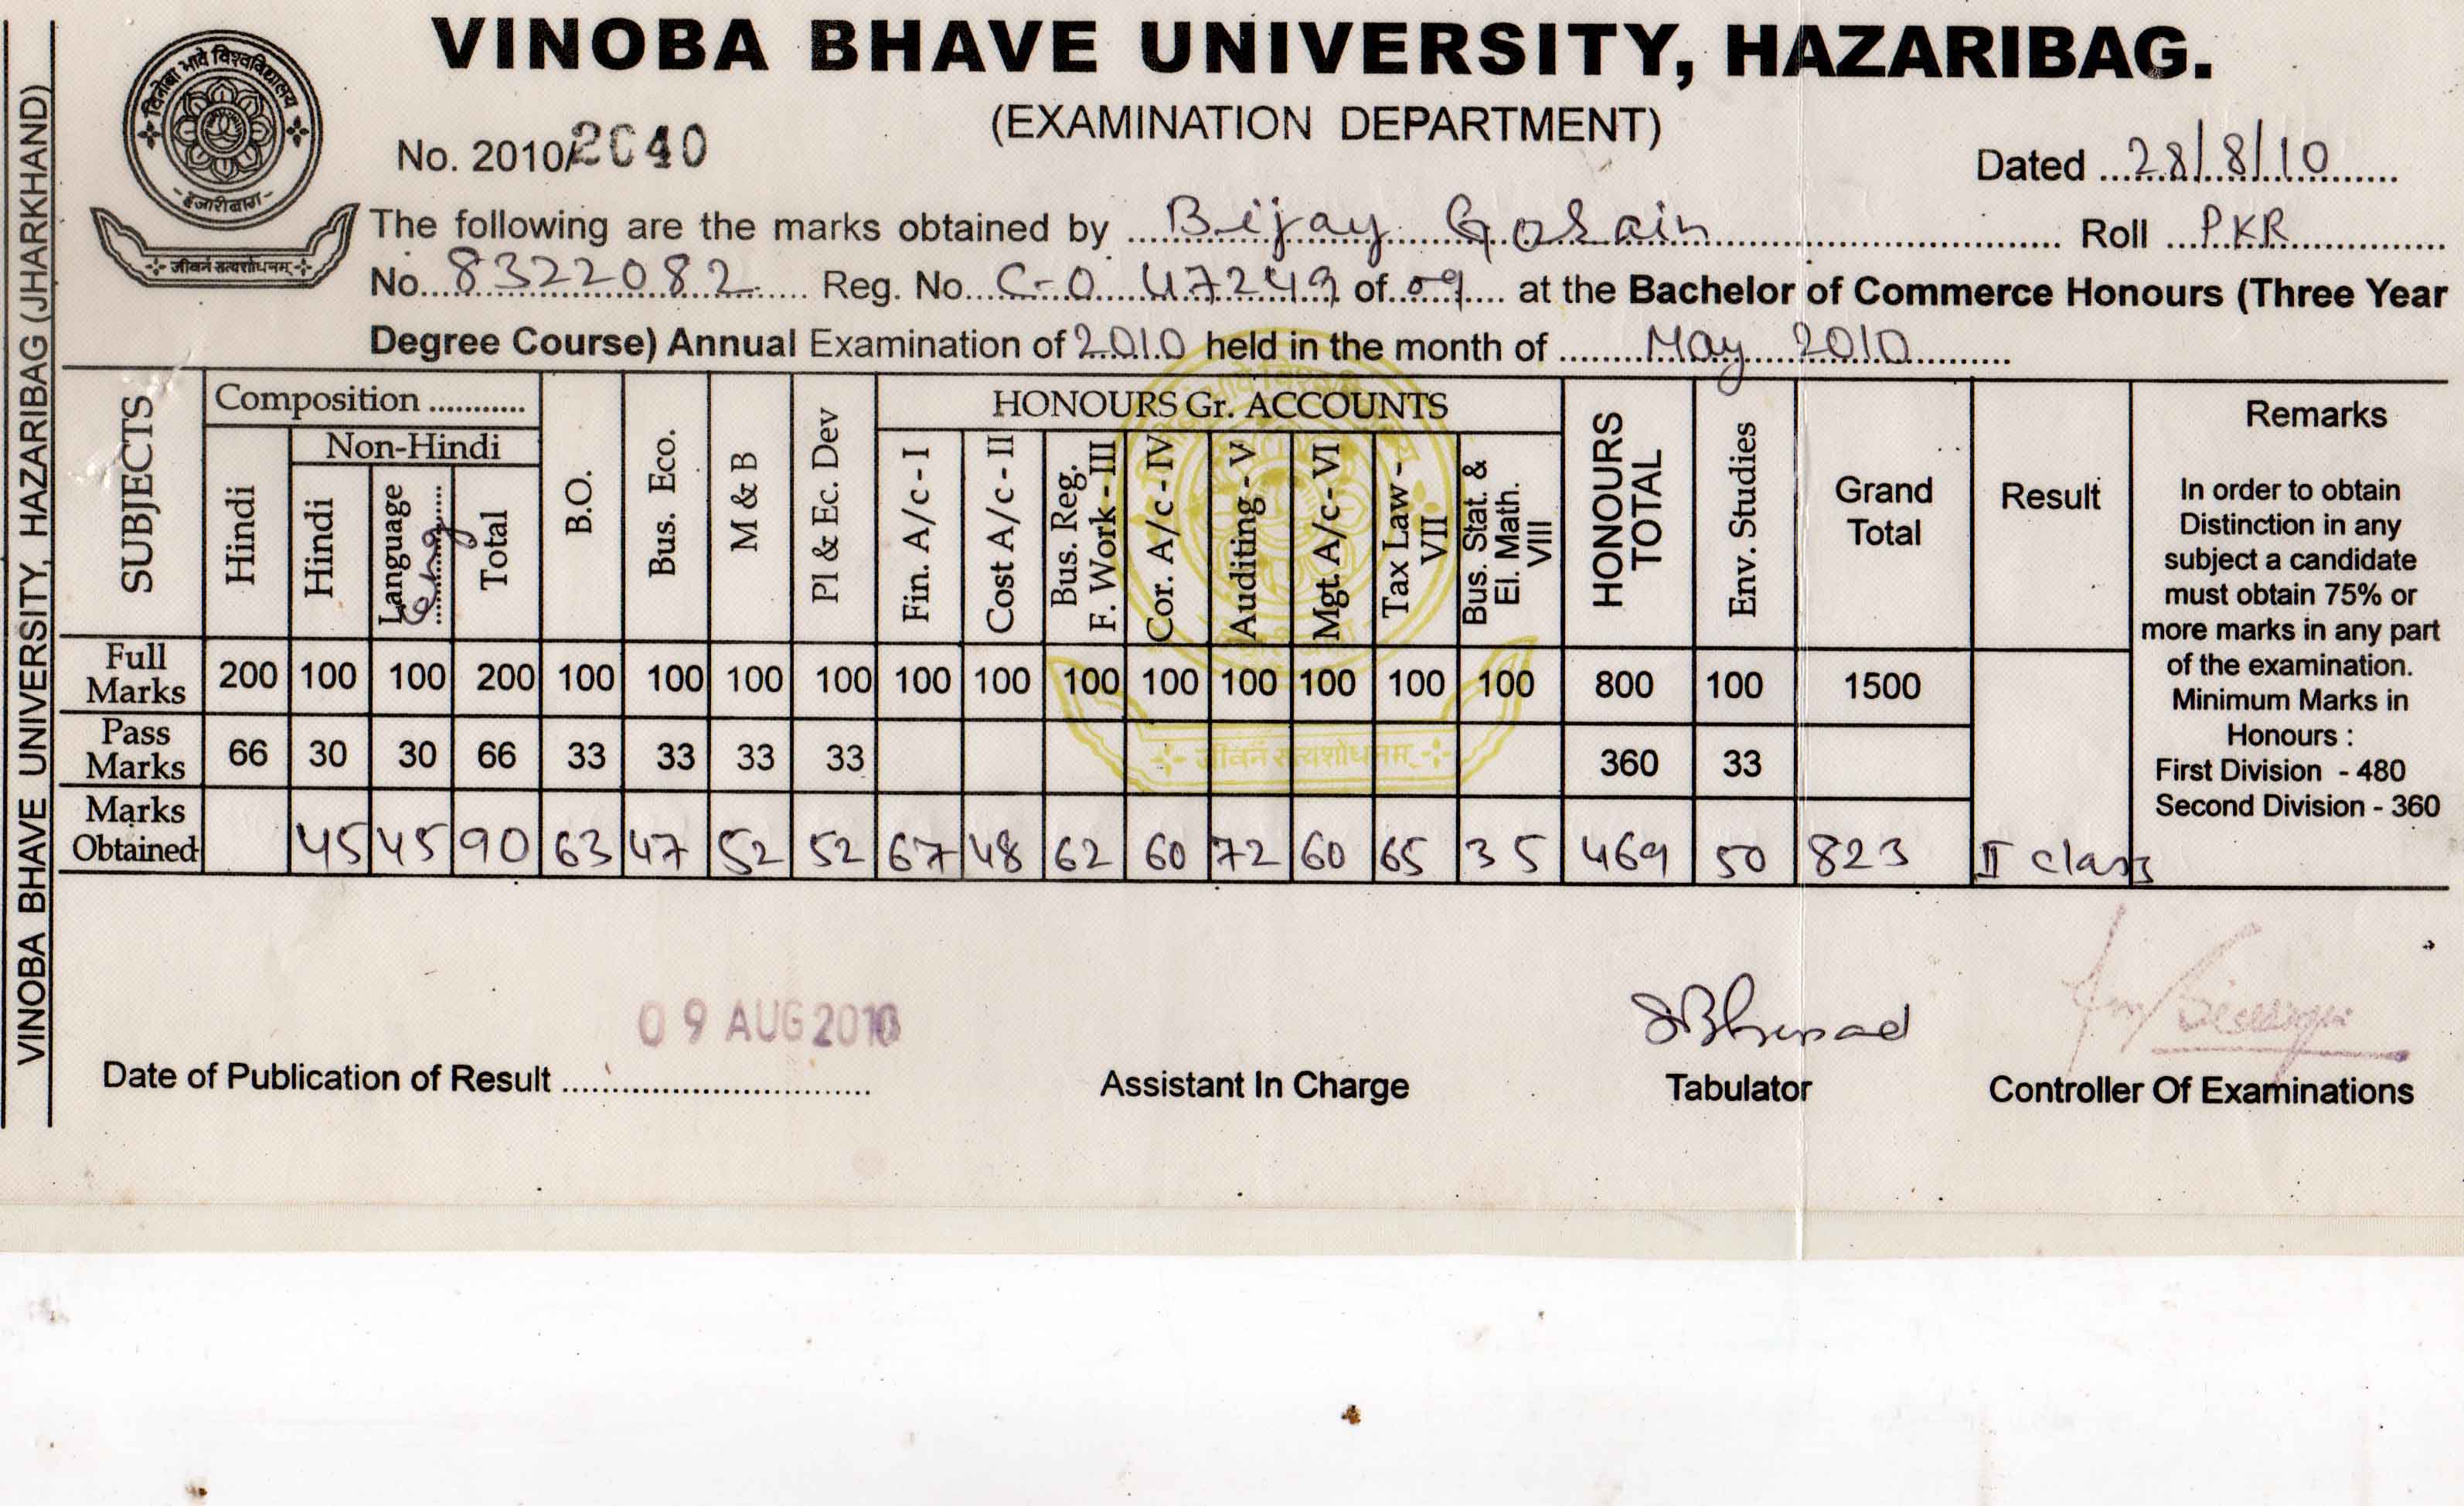 VINOBA BHAVE UNIVERSITY, HAZARIBAG (JHARKHAND)
VINOBA BHAVE UNIVERSITY, HAZARIBAG.
(EXAMINATION DEPARTMENT)
विनोबा भावे विश्वविद्यालय
- हजारीबाग -
जीवनं सत्यशोधनम्
No. 2010/2040
Dated 28/8/10
The following are the marks obtained by Bijay Gosain Roll PKR
No. 8322082 Reg. No. C-0 47249 of 09 at the Bachelor of Commerce Honours (Three Year
Degree Course) Annual Examination of 2010 held in the month of May 2010
SUBJECTS Composition ............ Hindi Non-Hindi Hindi Language Eng Total B.O. Bus. Eco. M & B Pl & Ec. Dev HONOURS Gr. ACCOUNTS Fin. A/c - I Cost A/c - II Bus. Reg. F. Work - III Cor. A/c - IV Auditing - V Mgt. A/c - VI Tax Law - VII Bus. Stat. & El. Math. VIII HONOURS TOTAL Env. Studies Grand Total Result
Full Marks 200 100 100 200 100 100 100 100 100 100 100 100 100 100 100 100 800 100 1500
Pass Marks 66 30 30 66 33 33 33 33 360 33
Marks Obtained 45 45 90 63 47 52 52 67 48 62 60 72 60 65 35 469 50 823 II class
Remarks
In order to obtain
Distinction in any
subject a candidate
must obtain 75% or
more marks in any part
of the examination.
Minimum Marks in
Honours :
First Division - 480
Second Division - 360
जीवनं सत्यशोधनम्
09 AUG 2010
Date of Publication of Result ..............................
Assistant In Charge
Tabulator
Controller Of Examinations
VINOBA BHAVE UNIVERSITY, HAZARIBAG